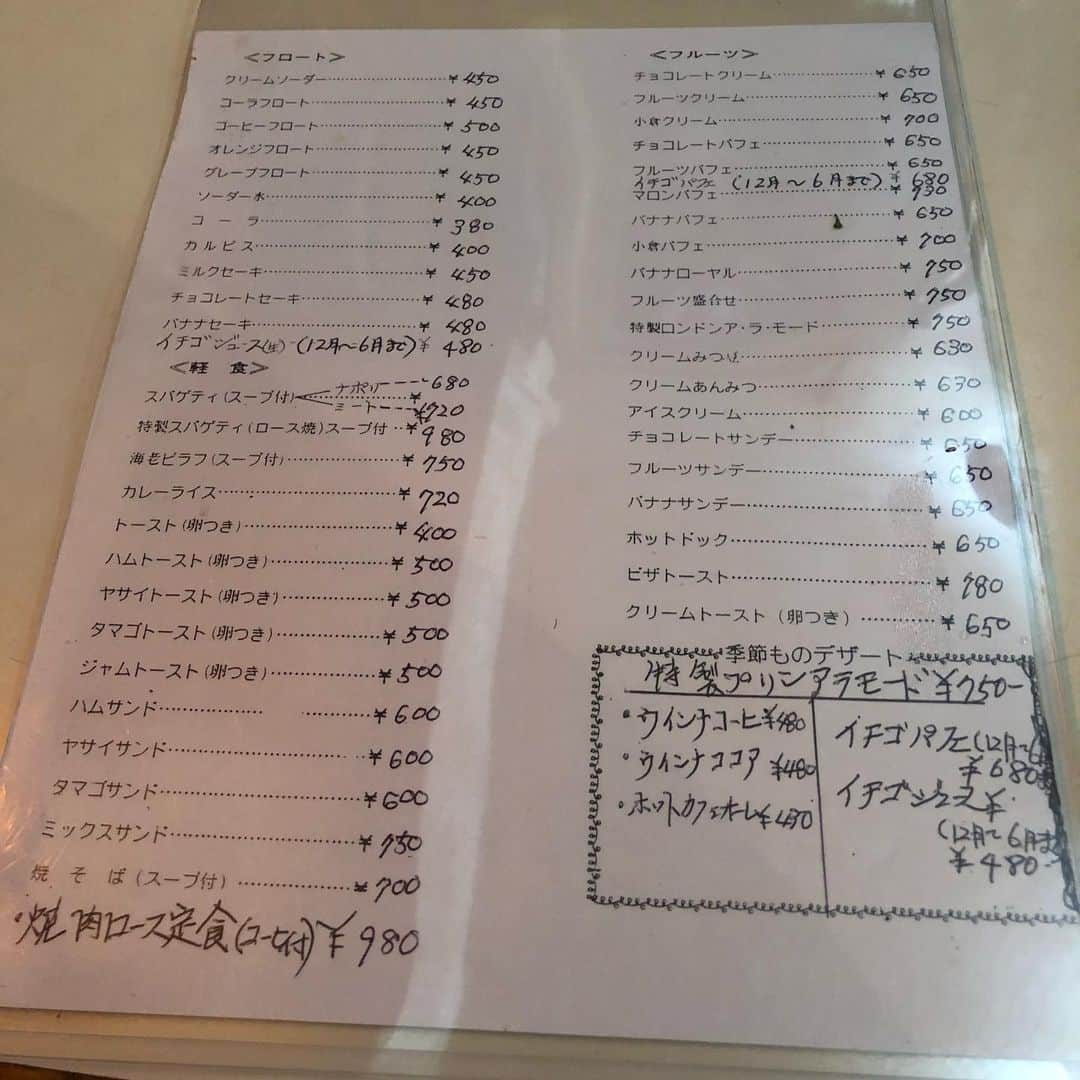 ＜フロート＞
クリームソーダー ¥450
コーラフロート ¥450
コーヒーフロート ¥500
オレンジフロート ¥450
グレープフロート ¥450
ソーダー水 ¥400
コーラ ¥380
カルピス ¥400
ミルクセーキ ¥450
チョコレートセーキ ¥480
バナナセーキ ¥480
イチゴジュース(生) (12月～6月まで) ¥480
＜軽 食＞
スパゲティ(スープ付) ナポリ 680
ミート ¥720
特製スパゲティ(ロース焼)スープ付 ¥980
海老ピラフ(スープ付) ¥750
カレーライス ¥720
トースト(卵つき) ¥400
ハムトースト(卵つき) ¥500
ヤサイトースト(卵つき) ¥500
タマゴトースト(卵つき) ¥500
ジャムトースト(卵つき) ¥500
ハムサンド ¥600
ヤサイサンド ¥600
タマゴサンド ¥600
ミックスサンド ¥750
焼そば(スープ付) ¥700
・焼肉ロース定食(コーヒ付) ¥980
＜フルーツ＞
チョコレートクリーム ¥650
フルーツクリーム ¥650
小倉クリーム ¥700
チョコレートパフェ ¥650
フルーツパフェ ¥650
イチゴパフェ (12月～6月まで) ¥680
マロンパフェ ¥730
バナナパフェ ¥650
小倉パフェ ¥700
バナナローヤル ¥750
フルーツ盛合せ ¥750
特製ロンドンア・ラ・モード ¥750
クリームみつ豆 ¥630
クリームあんみつ ¥630
アイスクリーム ¥600
チョコレートサンデー ¥650
フルーツサンデー ¥650
バナナサンデー ¥650
ホットドック ¥650
ピザトースト ¥780
クリームトースト (卵つき) ¥650
季節ものデザート
特製プリンアラモード ¥750-
・ウインナコーヒ ¥480
・ウインナココア ¥480
・ホットカフェオーレ ¥430
イチゴパフェ(12月～6
¥680
イチゴジュース ¥
(12月～6月ま
¥480